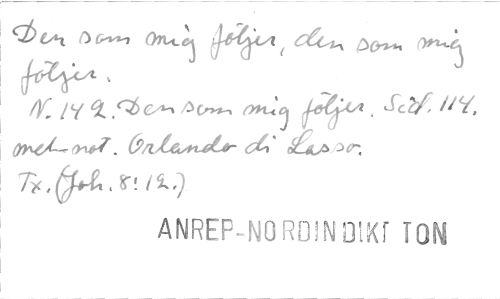 Den som mig följer, den som mig
följer.
N. 142. Den som mig följer. Sid. 114.
met-not. Orlando di Lasso.
Tx. (Joh. 8:12.)
ANREP-NORDIN DIKT TON